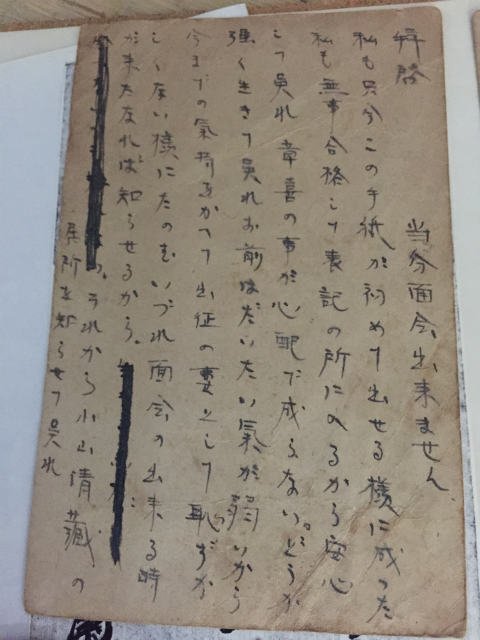 拝啓　当分面会出来ません。
私も只今この手紙が初めて出せる様に成った
私も無事合格して表記の所に入るから安心
して呉れ 章喜の事が心配で成らない。どうか
強く生きて呉れお前はだいたい氣が弱いから
今までの氣持をかへて出征の妻として恥ずか
しくない様にたのむいづれ面会の出来る時
が来たなれば知らせるから。
う。それから小山情藏の
居所を知らせて呉れ